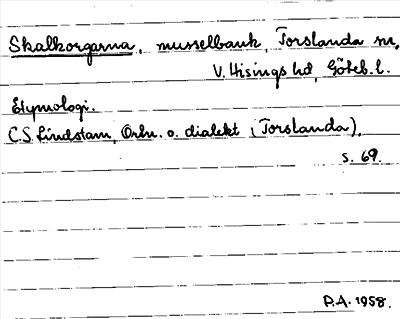 Skalkorgarna, musselbank, Torslanda sn,
V. Hisings hd, Göteb. l.
Etymologi.
C S Lindstam, Ortn. o. dialekt i Torslanda),
s. 69.
P.A. 1958.